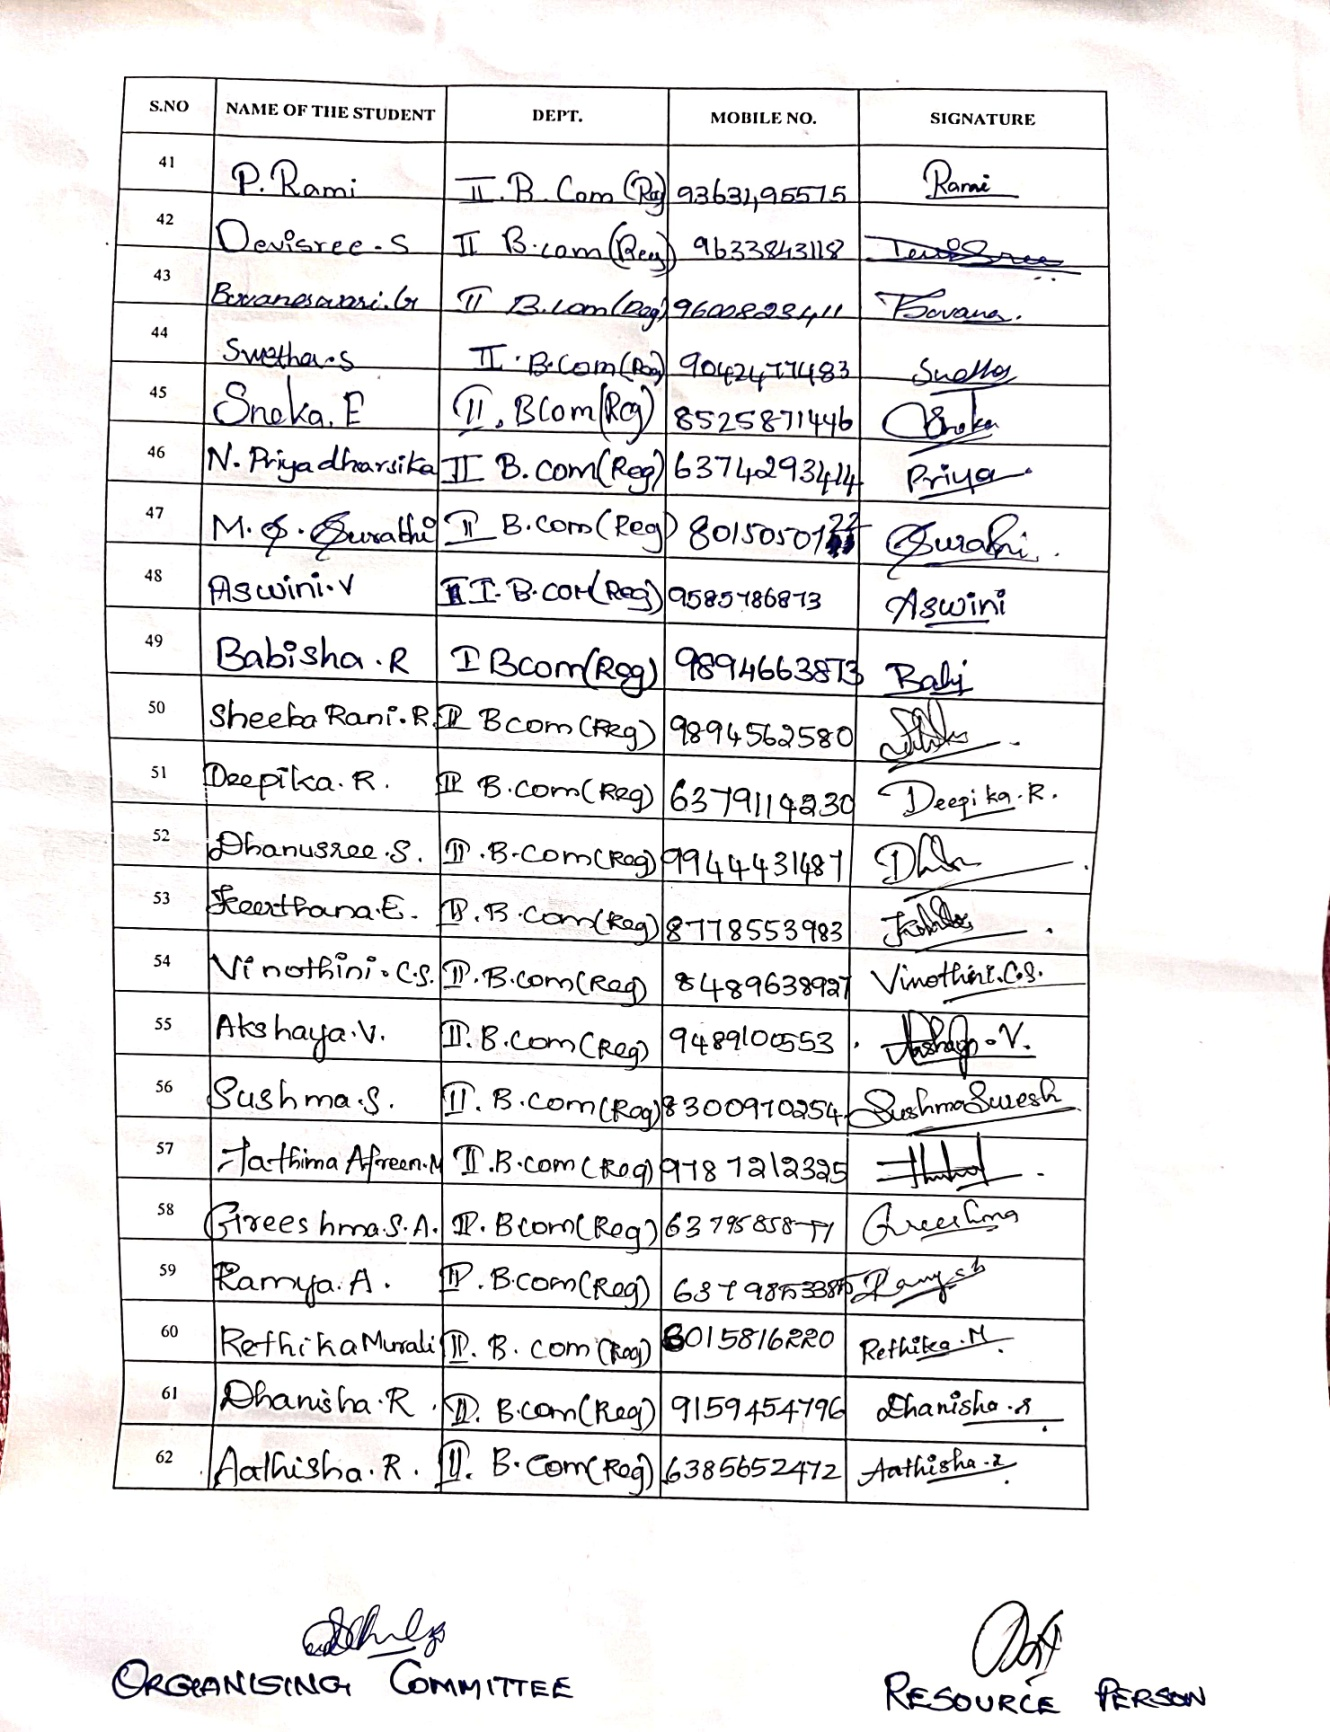 S.NO NAME OF THE STUDENT DEPT. MOBILE NO. SIGNATURE
41 P. Rami II. B. Com (Reg) 9363195575 Rami
42 Devisree.S II B.com (Reg) 9633843118 DeviSree
43 Bovaneswari.G II B.com (Reg) 9600823411 Bovana.
44 Swetha.S II. B.Com (Reg) 9042477483 Swetha
45 Sneka. E II. BCom (Reg) 8525871446 Sneka
46 N. Priyadharsika II B.com (Reg) 6374293414 Priya
47 M. S. Surathi II B.com (Reg) Surathi.
48 Aswini.V II. B.com (Reg) 9585786873 Aswini
49 Babisha.R I Bcom (Reg) 9894663873 Babi
50 Sheeba Rani.R. II Bcom (Reg) 9894562580
51 Deepika. R. II B.com (Reg) 6379114230 Deepika.R.
52 Dhanusree.S. II.B.Com (Reg) 9944431487
53 Keerthana.E. II.B.com (Reg) 8778553983
54 Vinothini.C.S. II.B.com (Reg) 8489638927 Vinothini.C.S.
55 Akshaya.V. II.B.Com (Reg) 9489100553 Akshaya.V.
56 Sushma.S. II.B.com (Reg) 8300970254 Sushma Suresh
57 Fathima Afreen.M II.B.com (Reg) 9787212325
58 Greeshma.S.A. II.Bcom (Reg) 6379585877 Greeshma
59 Ramya. A. II.B.com (Reg) Ramya
60 Rethika Murali II. B. com (Reg) 8015816220 Rethika.M
61 Dhanisha.R II. B.com (Reg) 9159454796 Dhanisha.R
62 Aathisha.R. II. B.Com (Reg) 6385652472 Aathisha.R
ORGANISING COMMITTEE RESOURCE PERSON